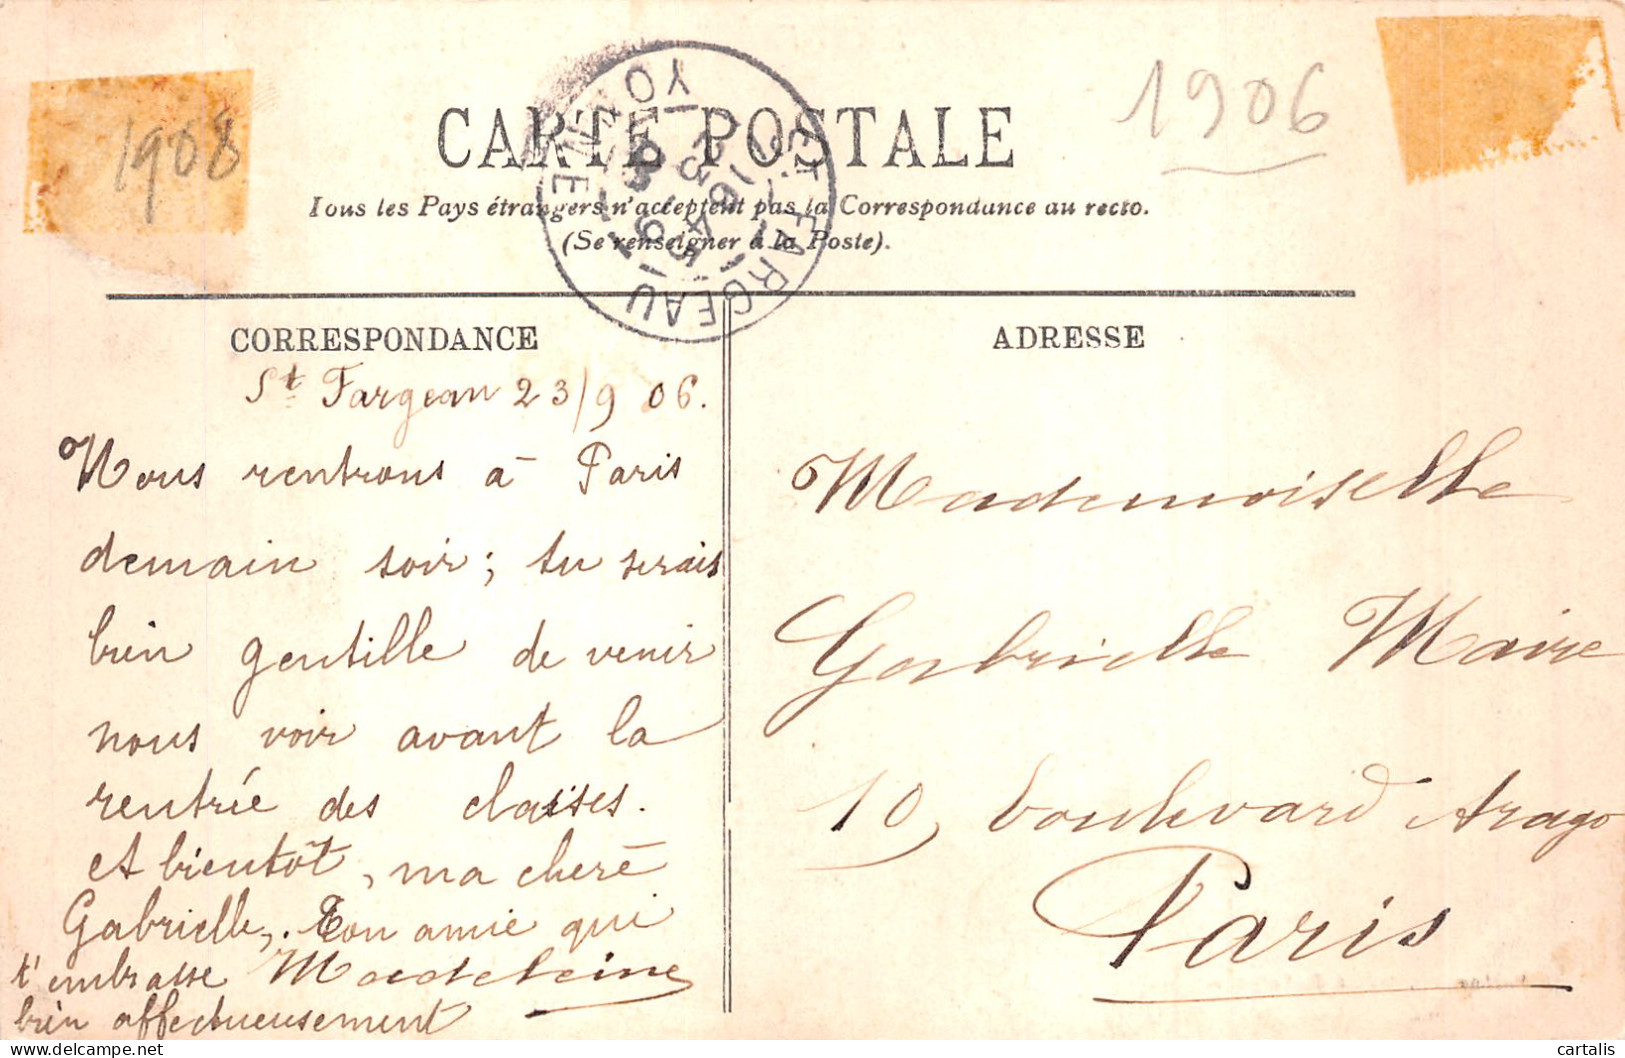 1908
1906
CARTE POSTALE
Tous les Pays étrangers n'acceptent pas la Correspondance au recto.
(Se renseigner à la Poste).
ST FARGEAU
YONNE
CORRESPONDANCE
St Fargeau 23/9 06.
Nous rentrons à Paris
demain soir ; tu serais
bien gentille de venir
nous voir avant la
rentrée des classes.
A bientôt, ma chère
Gabrielle, Ton amie qui
t'embrasse Madeleine
bien affectueusement
ADRESSE
Mademoiselle
Gabrielle Maire
10, boulevard Arago
Paris
cartalis